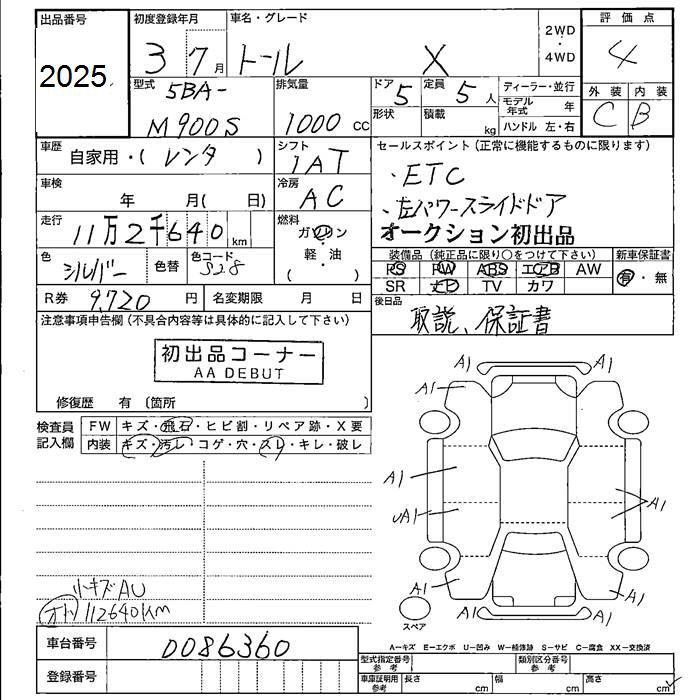 出品番号 初度登録年月 車名・グレード 2WD・4WD 評価点
2025 3 7月 トール X 4
型式 5BA-M900S 排気量 1000 cc ドア 5 定員 5 人 ディーラー・並行 外装 内装
形状 積載 kg モデル年式 年 C B
ハンドル 左・右
車歴 自家用・( レンタ ) シフト 1AT セールスポイント(正常に機能するものに限ります)
車検 年 月( 日) 冷房 AC ・ETC
走行 11万2千640km 燃料 ガソリン ・左パワースライドドア
軽・油 オークション初出品
( )
色 シルバー 色替 色コード S28 装備品(純正品に限り○をつけて下さい) 新車保証書
PS PW ABS エアB AW 有・無
R券 9,720 円 名変期限 月 日 SR ナビ TV カワ
注意事項申告欄(不具合内容等は具体的に記入して下さい) 後日品
取説、保証書
初出品コーナー
AA DEBUT
修復歴 有 (箇所 )
検査員記入欄 FW キズ・飛石・ヒビ割・リペア跡・X要
内装 キズ・汚レ・コゲ・穴・スレ・キレ・破レ
A1 A1
A1 A1
A1
UA1 A1
A1 A1
A1
小キズAU
オトリ 112640km
スペア
車台番号 0086360 A−キズ E−エクボ U−凹み W−補修跡 S−サビ C−腐食 XX−交換済
登録番号 型式指定番号 参考 類別区分番号 参考
車庫証明用 参考 長さ cm 幅 cm 高さ cm